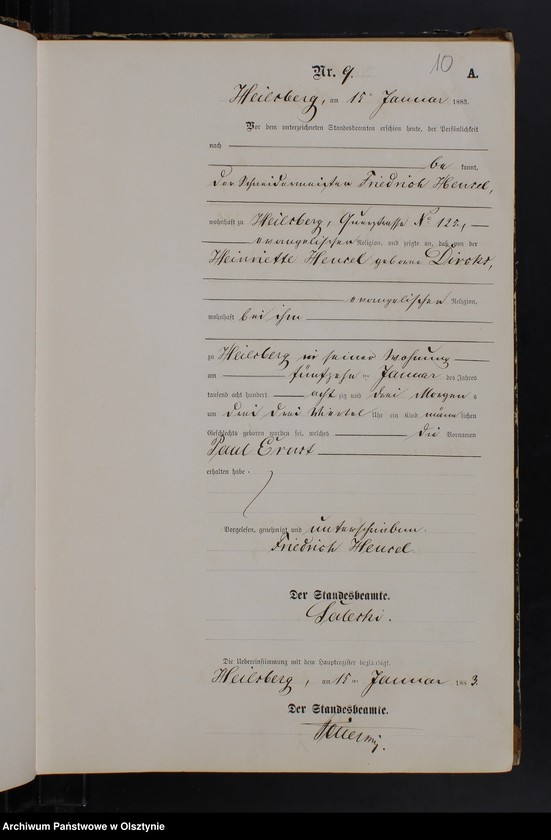 10
Nr. 9. A.
Heilsberg, am 15ten Januar 1883.
Vor dem unterzeichneten Standesbeamten erschien heute, der Persönlichkeit
nach
be kannt,
der Schneidermeister Friedrich Hensel,
wohnhaft zu Heilsberg, Querstrasse No 125,
evangelischer Religion, und zeigte an, daß von der
Heinriette Hensel geborne Dircks,
evangelischer Religion,
wohnhaft bei ihm
zu Heilsberg in seiner Wohnung
am fünfzehn ten Januar des Jahres
tausend acht hundert acht zig und drei Morgens
um drei drei Viertel Uhr ein Kind männ lichen
Geschlechts geboren worden sei, welches die Vornamen
Paul Ernst
erhalten habe.
Vorgelesen, genehmigt und unterschrieben.
Friedrich Hensel
Der Standesbeamte.
Die Uebereinstimmung mit dem Hauptregister beglaubigt.
Heilsberg, am 15ten Januar 188 3.
Der Standesbeamte.
Archiwum Państwowe w Olsztynie